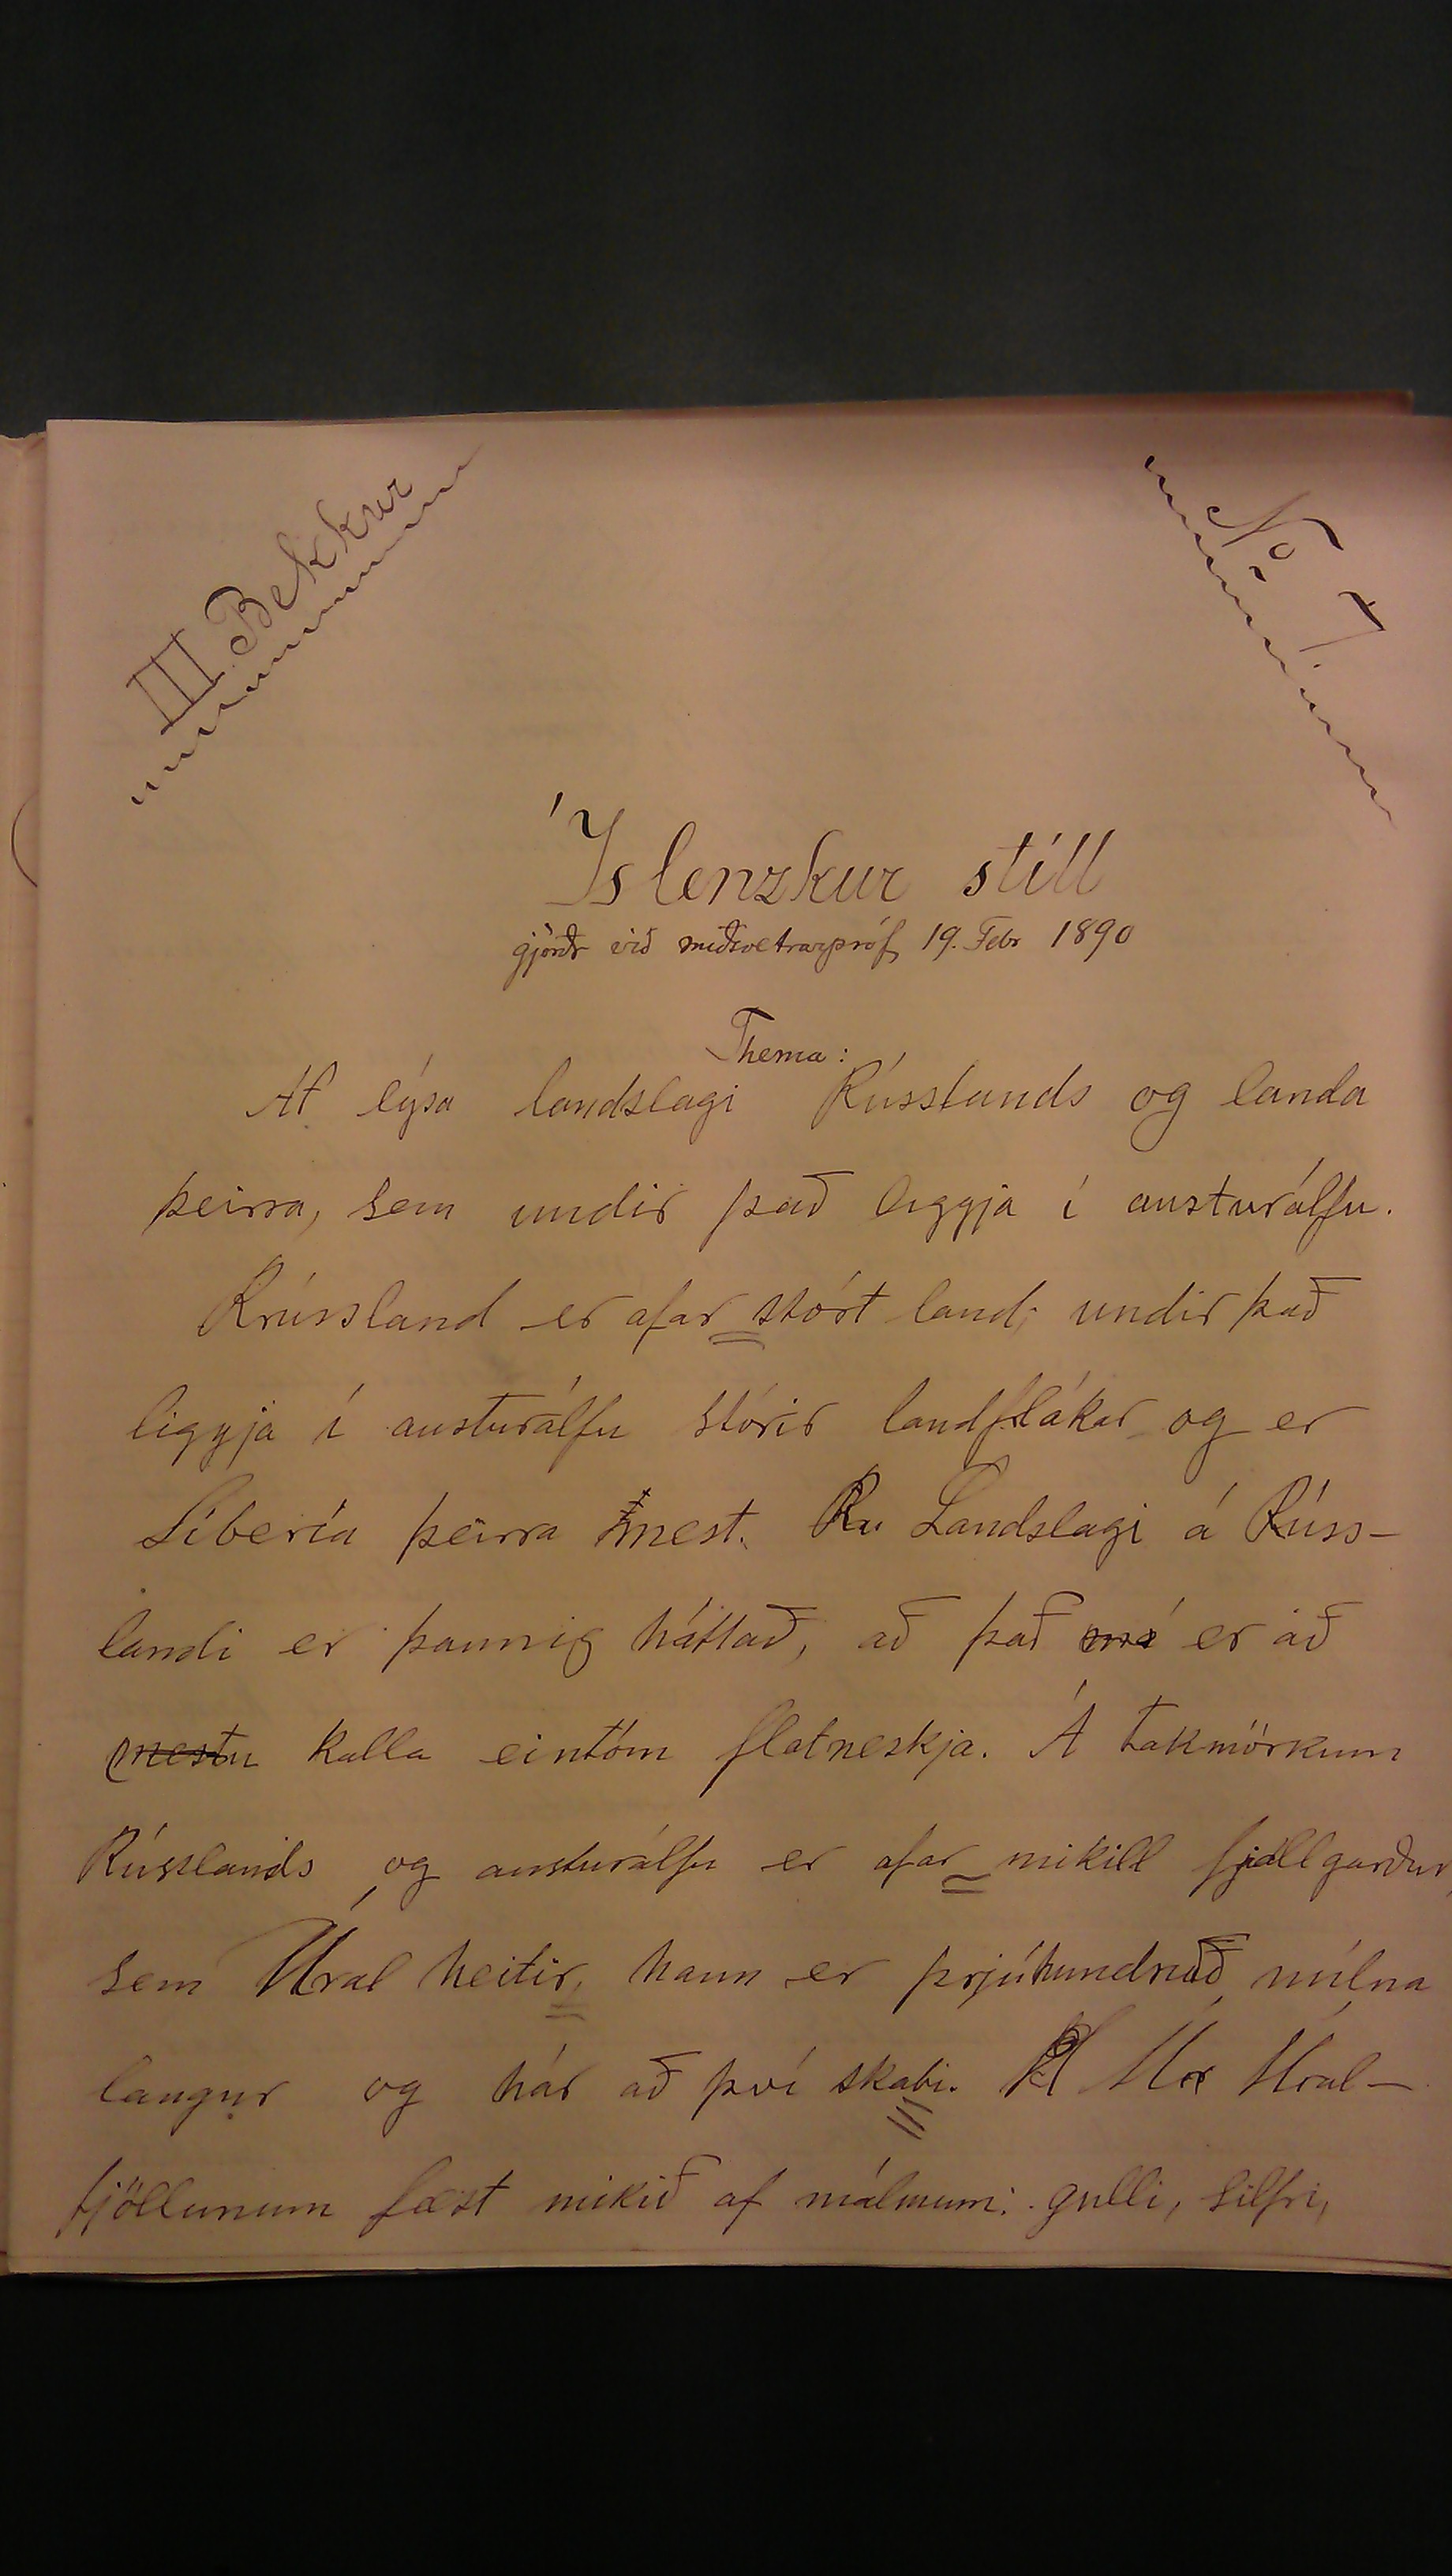 III. Bekkur
No 7.
Íslenzkur stíll
gjörðr við miðsvetrarpróf 19. Febr 1890
Thema:
At lýsa landslagi Rússlands og landa
þeirra, sem undir það liggja í austurálfu.
Rússland er afar stórt land; undir það
liggja í austurálfu stórir landflákar og er
Síbería þeirra mest. Landslagi á Rúss-
landi er þannig háttað, að það er að
kalla eintóm flatneskja. Á takmörkum
Rússlands og austurálfu er afar mikill fjallgarður,
sem Úral heitir, hann er þrjúhundruð mílna
langur og hár að því skabi. Úr Úral-
fjöllunum fæst mikið af málmum: gulli, silfri,